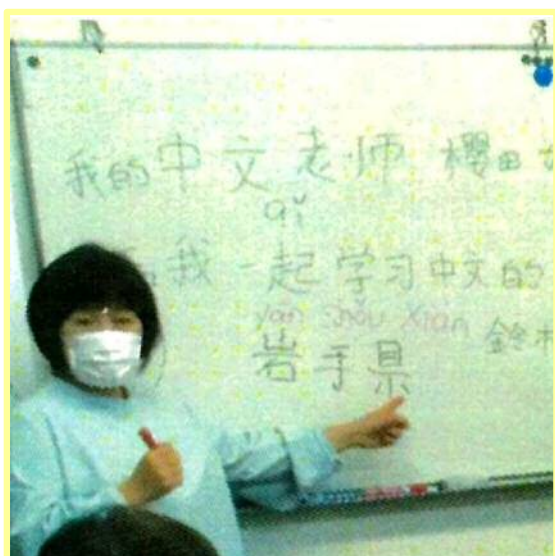 我的中文老师 櫻田
qǐ
我一起学习中文的
yán shǒu Xiàn
岩手県
鈴木